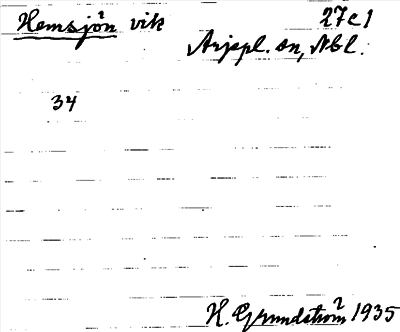 Hemsjön vik
27c1
Arjepl. sn, Nbl.
34
H. Grundström 1935